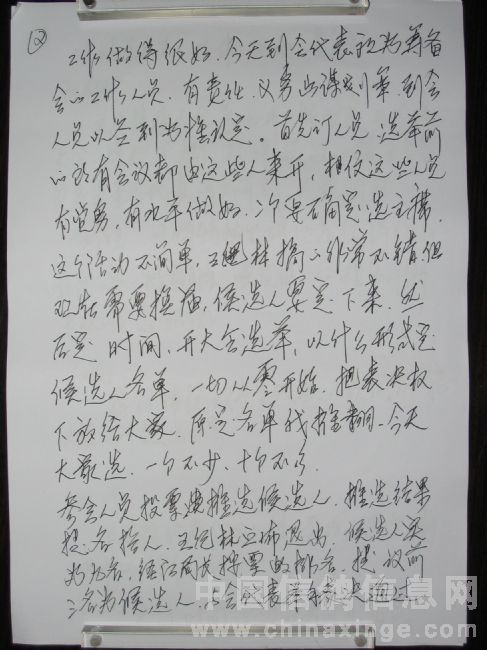 ②
工作做得很好。今天到会代表视为筹备
会的工作人员,有责任、义务出谋划策,到会
人员以签到为准认定。首先订人员,选举前
的所有会议都由这些人来开,相信这些人员
有觉务,有水平做好。次要确定选主席,
这个活动不简单,王纪林搞的非常不错,但
现在需要换届,候选人要定下来,然
后定时间,开大会选举,以什么形式定
候选人名单,一切从零开始,把表决权
下放给大家,原定名单我推翻,今天
大家选,一个不少,十个不多
参会人员投票推选候选人,推选结果
提名 人,王纪林宣布退出,候选人
为九名,经 投票的排名,提议前
名为候选人,与会代表举手表决通过
中国信鸽信息网
www.chinaxinge.com